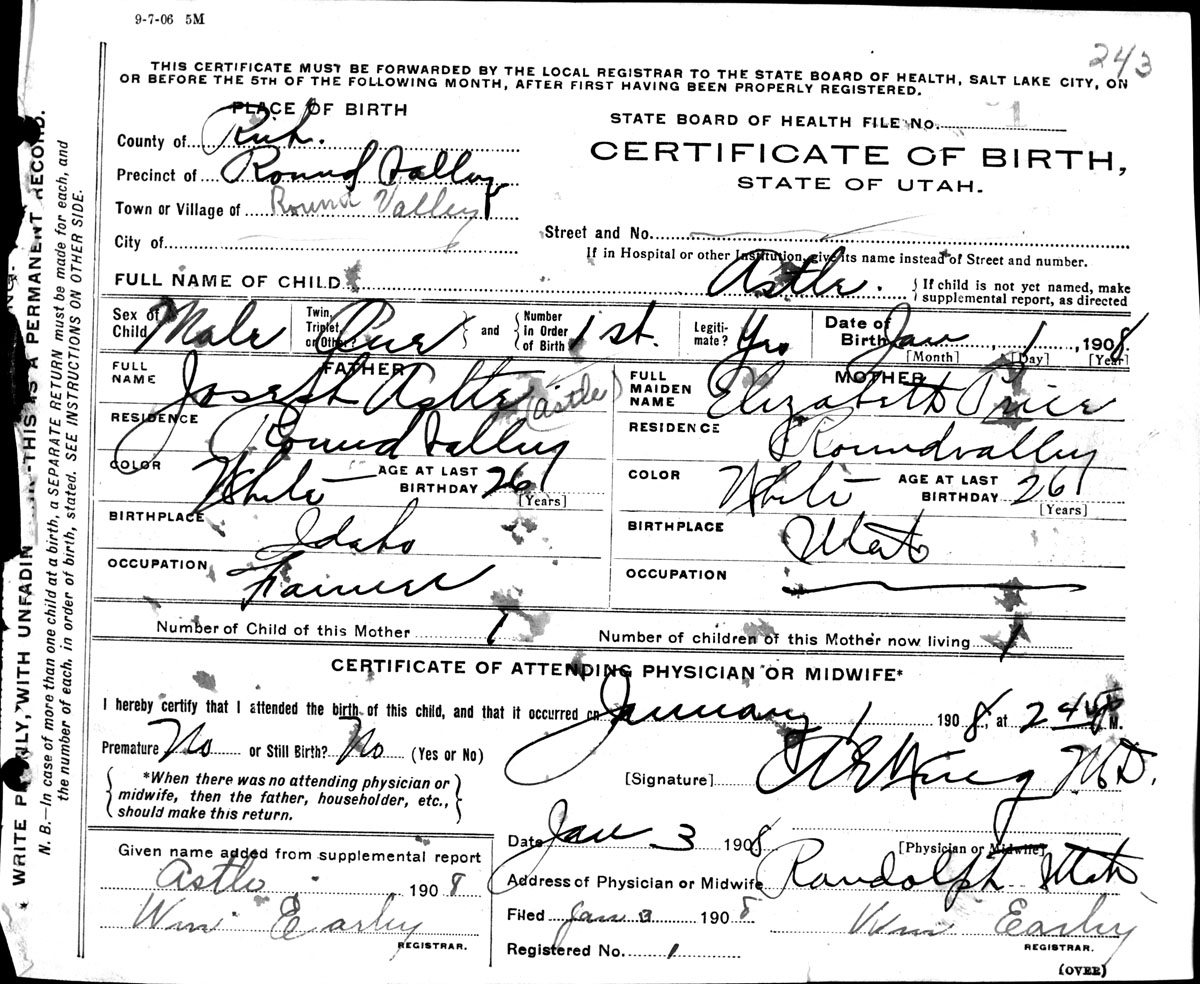 9-7-06 5M
243
THIS CERTIFICATE MUST BE FORWARDED BY THE LOCAL REGISTRAR TO THE STATE BOARD OF HEALTH, SALT LAKE CITY, ON
OR BEFORE THE 5TH OF THE FOLLOWING MONTH, AFTER FIRST HAVING BEEN PROPERLY REGISTERED.
PLACE OF BIRTH
STATE BOARD OF HEALTH FILE No. 1
County of Rich.
CERTIFICATE OF BIRTH,
STATE OF UTAH.
Precinct of Round Valley
Town or Village of Round Valley
City of
Street and No.
If in Hospital or other Institution, give its name instead of Street and number.
FULL NAME OF CHILD Astle. { If child is not yet named, make
supplemental report, as directed
Sex of Child Male Twin, Triplet, or Other? One and Number in Order of Birth 1st. Legiti-mate? Yes Date of Birth Jan 1, 1908
[Month] [Day] [Year]
FATHER
FULL NAME Joseph Astle (Astle)
RESIDENCE Round Valley
COLOR White AGE AT LAST BIRTHDAY 26 [Years]
BIRTHPLACE Idaho
OCCUPATION Farmer
MOTHER
FULL MAIDEN NAME Elizabeth Price
RESIDENCE Roundvalley
COLOR White AGE AT LAST BIRTHDAY 26 [Years]
BIRTHPLACE Utah
OCCUPATION
Number of Child of this Mother 1 Number of children of this Mother now living 1
CERTIFICATE OF ATTENDING PHYSICIAN OR MIDWIFE*
I hereby certify that I attended the birth of this child, and that it occurred on January 1 1908, at 2 45 P M.
Premature No or Still Birth? No (Yes or No)
[Signature] M.D.
*When there was no attending physician or
midwife, then the father, householder, etc.,
should make this return.
Date Jan 3 1908
[Physician or Midwife]
Address of Physician or Midwife Randolph Utah
Filed Jan 3 1908 Wm Earley
REGISTRAR.
Registered No. 1
(OVER)
Given name added from supplemental report
Astle 1908
Wm Earley
REGISTRAR.
* WRITE PLAINLY, WITH UNFADING THIS IS A PERMANENT RECORD.
N. B.—In case of more than one child at a birth, a SEPARATE RETURN must be made for each, and
the number of each, in order of birth, stated. SEE INSTRUCTIONS ON OTHER SIDE.